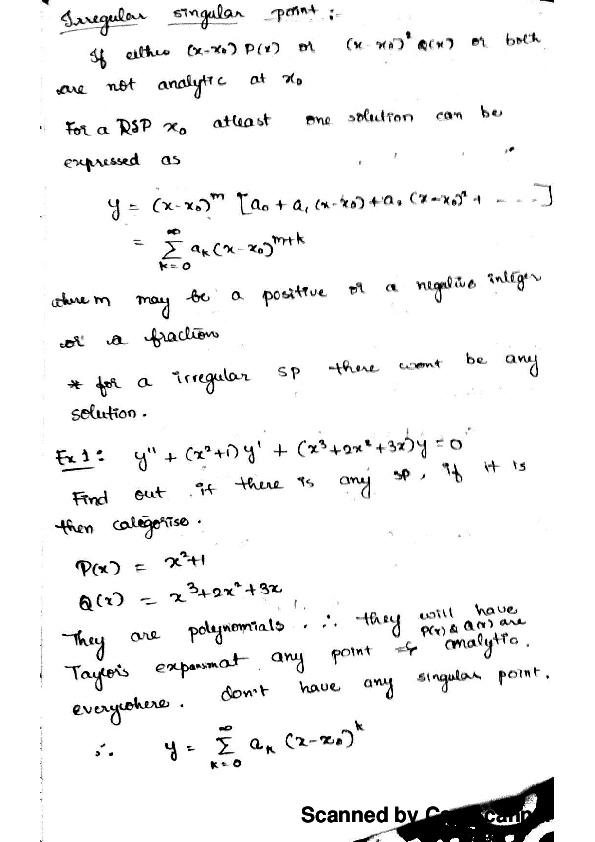 Irregular singular point :-
If either (x-x₀) P(x) or (x-x₀)² Q(x) or both
are not analytic at x₀
For a RSP x₀ atleast one solution can be
expressed as
y = (x-x₀)^m [a₀ + a₁ (x-x₀) + a₂ (x-x₀)² + - - - -]
= ∞ Σ k=0 aₖ (x-x₀)^{m+k}
where m may be a positive or a negative integer
or a fraction
* for a irregular sp there wont be any
solution.
Ex 1 : y" + (x²+1) y' + (x³+2x²+3x) y = 0
Find out if there is any sp, if it is
then categorise.
P(x) = x²+1
Q(x) = x³+2x²+3x
They are polynomials. ∴ they will have
Taylor's expansn at any point ⇒ P(x) & Q(x) are analytic
everywhere. don't have any singular point.
∴ y = ∞ Σ k=0 aₖ (x-x₀)^k
Scanned by